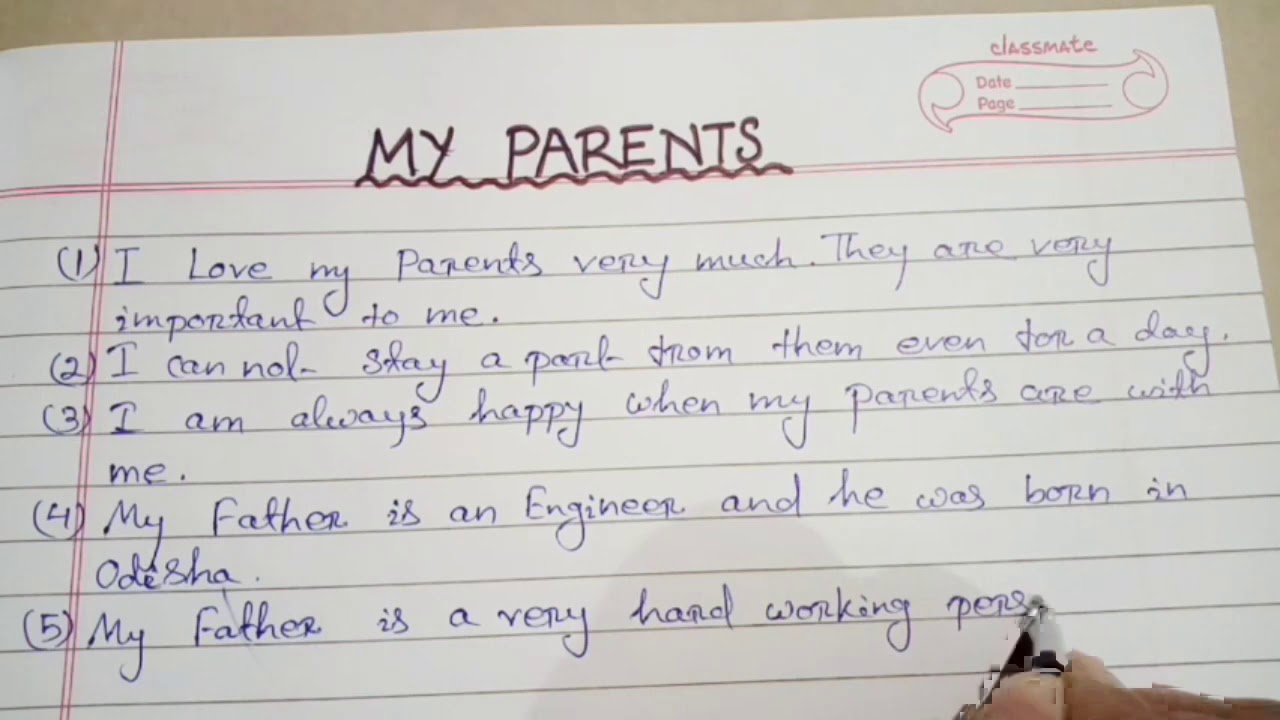 classmate
Date
Page
MY PARENTS
(1) I Love my Parents very much. They are very
important to me.
(2) I can not stay a part from them even for a day.
(3) I am always happy when my parents are with
me.
(4) My Father is an Engineer and he was born in
Odesha.
(5) My Father is a very hard working pers